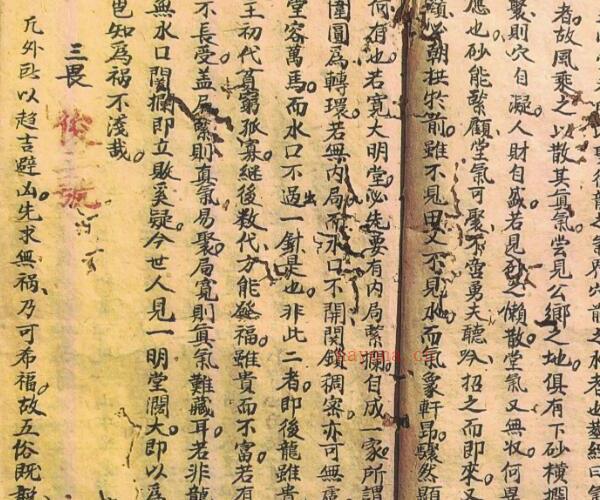 後龍之氣界穴前之水者也葬經曰氣
者故風乘之以散其眞氣尝見公鄉之地俱有下砂横攔
聚則穴自凝人財自盛若見砂之懶散堂氣又無收何
應也砂能緊顧堂氣可聚不啻勇夫聽吟招之而即來又
朝拱扵前雖不見田又不見水而氣象軒昂驟然顯
何有也若寬大明堂必先要有内局緊攔自成一家所謂
圍圓爲轉環若無内局而水口不開関鎖稠密亦可無
堂容萬馬而水口不過出一針是也非此二者即後龍雖貴
王初代貧窮孤寡継後数代方能發福雖貴而不富若有
不長受盖局緊則眞氣易聚局寬則眞氣難藏耳若非龍
無水口闊攔即立敗奚疑今世人見一明堂濶大即以爲
邑知爲禍不淺哉
三畏
凡外以趨吉避凶先求無禍乃可希福故五俗既